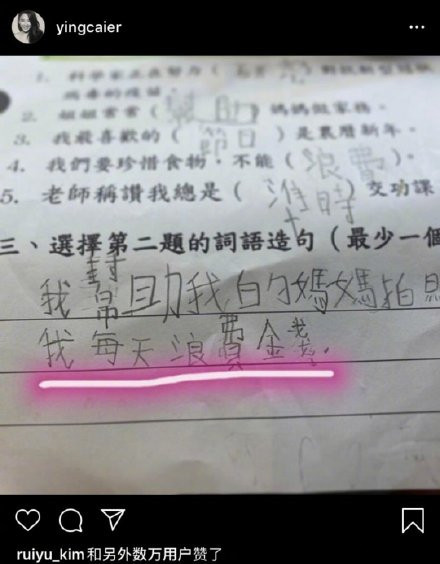 yingcaier
1. 科學家正在努力（
2. 姐姐常常（幫助）媽媽做家務。
3. 我最喜歡的（節日）是農曆新年。
4. 我們要珍惜食物，不能（浪費）。
5. 老師稱讚我總是（準時）交功課
三、選擇第二題的詞語造句（最少一個
我幫助我白勺媽媽拍照
我每天浪費金錢。
ruiyu_kim和另外数万用户赞了